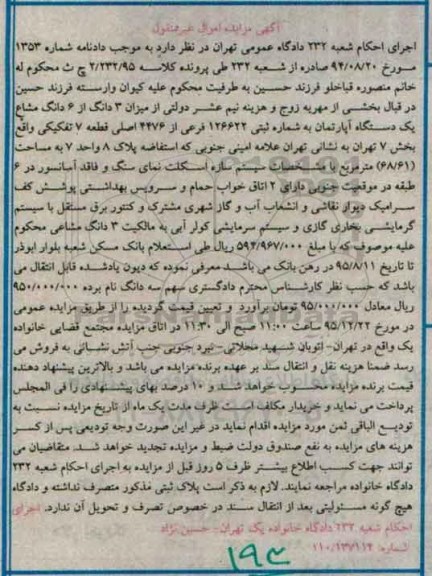 آگهی مزایده اموال غیرمنقول
اجرای احکام شعبه ۲۳۲ دادگاه عمومی تهران در نظر دارد به موجب دادنامه شماره ۱۳۵۳
مورخ ۹۴/۰۸/۲۰ صادره از شعبه ۲۳۲ طی پرونده کلاسه ۲/۲۳۲/۹۵ ج ث محکوم له
خانم منصوره قباخلو فرزند حسین به طرفیت محکوم علیه کیوان وارسته فرزند حسین
در قبال بخشی از مهریه زوج و هزینه نیم عشر دولتی از میزان ۳ دانگ از ۶ دانگ مشاع
یک دستگاه آپارتمان به شماره ثبتی ۱۲۶۶۲۲ فرعی از ۴۴۷۶ اصلی قطعه ۷ تفکیکی واقع
بخش ۷ تهران به نشانی تهران علامه امینی جنوبی که استفاضه پلاک ۸ واحد ۷ به مساحت
(۶۸/۶۱) مترمربع با مشخصات سیستم سازه اسکلت نمای سنگ و فاقد آسانسور در ۶
طبقه در موقعیت جنوبی دارای ۲ اتاق خواب حمام و سرویس بهداشتی پوشش کف
سرامیک دیوار نقاشی و انشعاب آب و گاز شهری مشترک و کنتور برق مستقل با سیستم
گرمایشی بخاری گازی و سیستم سرمایشی کولر آبی به مالکیت ۳ دانگ مشاعی محکوم
علیه موصوف که با مبلغ ۵۹۴/۹۶۷/۰۰۰ ریال طی استعلام بانک مسکن شعبه بلوار ابوذر
تا تاریخ ۹۵/۸/۱۱ در رهن بانک می باشد معرفی نموده که دیون یادشده قابل انتقال می
باشد که حسب نظر کارشناس محترم دادگستری سهم سه دانگ نام برده ۹۵۰/۰۰۰/۰۰۰
ریال معادل ۹۵/۰۰۰/۰۰۰ تومان برآورد و تعیین قیمت گردیده را از طریق مزایده عمومی
در مورخ ۹۵/۱۲/۲۲ ساعت ۱۱:۰۰ صبح الی ۱۱:۳۰ در اتاق مزایده مجتمع قضایی خانواده
یک واقع در تهران- اتوبان شهید محلاتی- نبرد جنوبی جنب آتش نشانی به فروش می
رسد ضمنا هزینه نقل و انتقال سند بر عهده برنده مزایده می باشد و بالاترین پیشنهاد دهنده
قیمت برنده مزایده محسوب خواهد شد و ۱۰ درصد بهای پیشنهادی را فی المجلس
پرداخت می نماید و خریدار مکلف است ظرف مدت یک ماه از تاریخ مزایده نسبت به
تودیع الباقی ثمن مورد مزایده اقدام نماید در غیر این صورت وجه تودیعی پس از کسر
هزینه های مزایده به نفع صندوق دولت ضبط و مزایده تجدید خواهد شد. متقاضیان می
توانند جهت کسب اطلاع بیشتر ظرف ۵ روز قبل از مزایده به اجرای احکام شعبه ۲۳۲
دادگاه خانواده مراجعه نمایند. لازم به ذکر است پلاک ثبتی مذکور متصرف نداشته و دادگاه
هیچ گونه مسئولیتی بعد از انتقال سند در خصوص تصرف و تحویل آن ندارد. اجرای
احکام شعبه ۲۳۲ دادگاه خانواده یک تهران- حسین نژاد
شماره: ۱۱۰/۱۳۷۱۱۴
۱۹۴